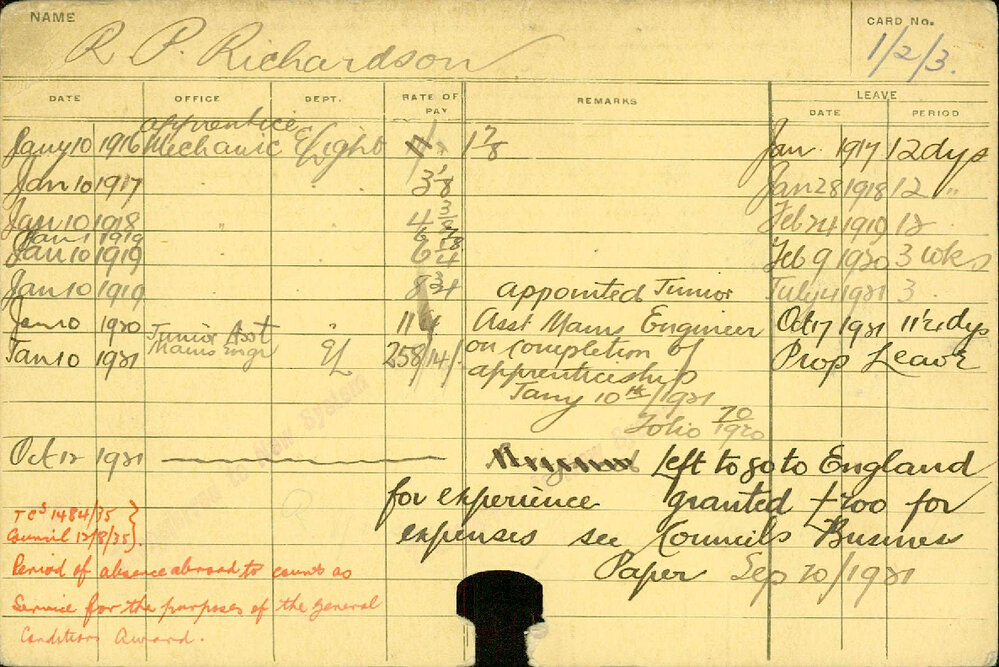 NAME R. P. Richardson CARD No. 1/2/3.
DATE OFFICE DEPT. RATE OF PAY REMARKS LEAVE
DATE PERIOD
apprentice
Jany 10 1916 Mechanic E/Light 1 7/8 Jan. 1917 12 dys
Jan 10 1917 " 3 1/8 Jan 28 1918 12 "
Jan 10 1918 " 4 Feb 24 1919 12
Jan 1 1919 6
Jan 10 1919 " 6 Feb 9 1920 3 wks
Jan 10 1919 8 3/4 appointed Junior July 4 1921 3
Jan 10 1920 " 11 Asst Mains Engineer Oct 17 1921 11 1/2 dys
Junior Asst
Jan 10 1921 Mains Engr E/L 258/14/- on completion of Prop Leave
apprenticeship
Jany 10th/1921
Folio 70/1920
Oct 12 1921 Left to go to England
for experience granted for
TCs 1484/35
Council 12/8/35
expenses see Councils Business
Period of absence abroad to count as
Paper Sep 20/1921
Service for the purposes of the General
Conditions Award.